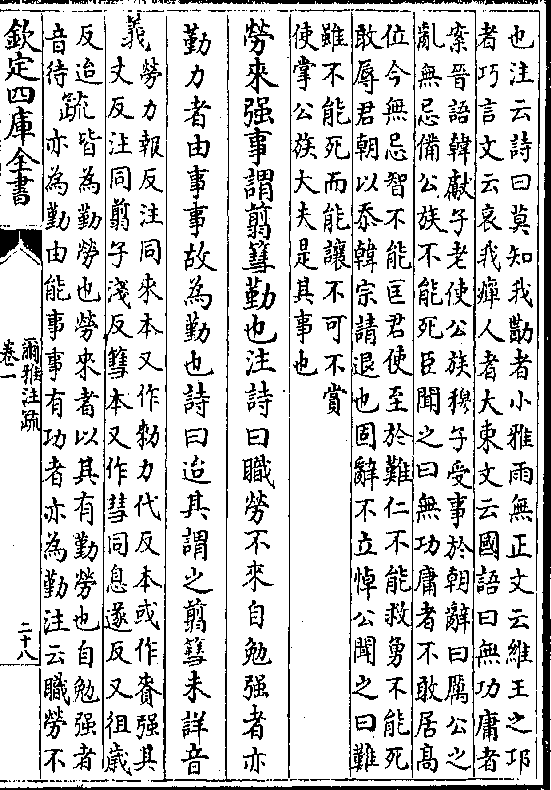 也注云詩曰莫知我勩者小雅雨無正文云維王之卭
者巧言文云哀我癉人者大東文云國語曰無功庸者
案晉語韓獻子老使公族穆子受事於朝辭曰厲公之
亂無忌備公族不能死臣聞之曰無功庸者不敢居髙
位今無忌智不能匡君使至於難仁不能救勇不能死
敢辱君朝以忝韓宗請退也固辭不立悼公聞之曰難
雖不能死而能讓不可不賞
使掌公族大夫是其事也
勞來强事謂翦篲勤也注詩曰職勞不來自勉强者亦
勤力者由事事故為勤也詩曰迨其謂之翦篲未詳音
義
勞力報反注同來本又作勑力代反本或作賚强其
丈反注同翦子淺反篲本又作彗同息遂反又徂歳
反迨
音待
疏
皆為勤勞也勞來者以其有勤勞也自勉强者
亦為勤由能事事有功者亦為勤注云職勞不
欽定四庫全書
爾雅注疏
卷一
二十八